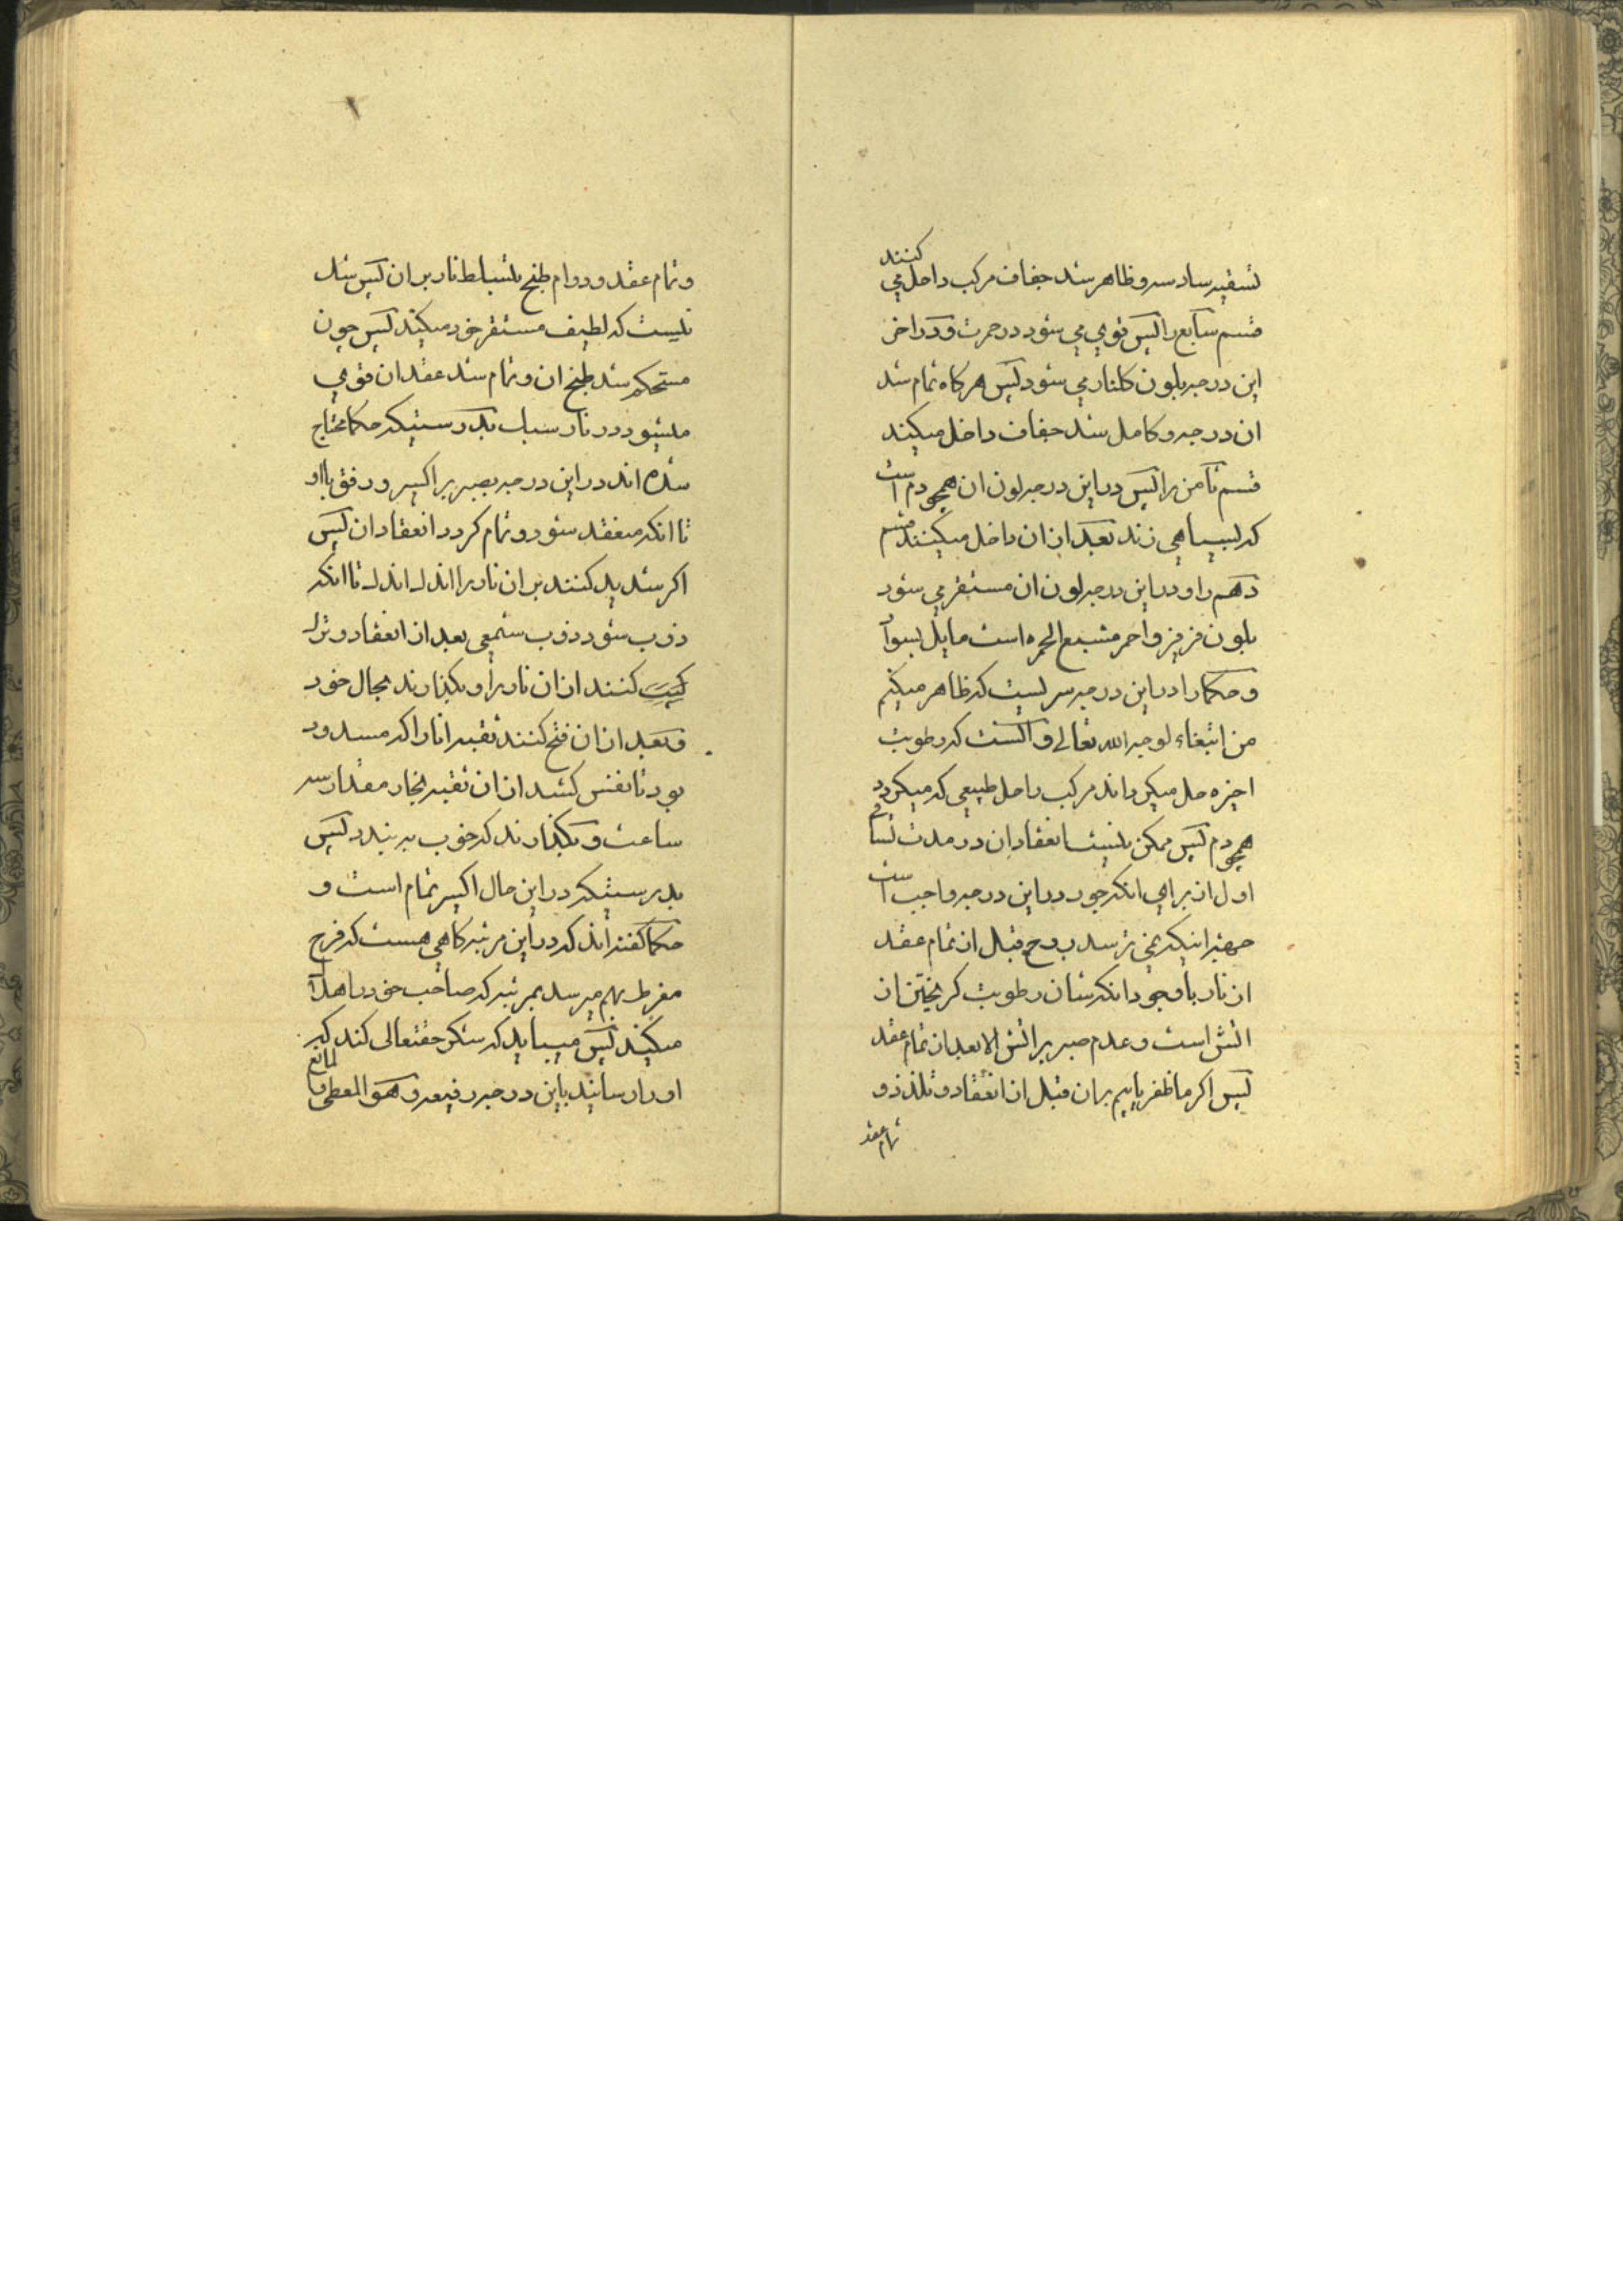 تسقیه سادسه و ظاهر شد جفاف مرکب داخل می کنند
قسم سابع را پس قوی می شود در حمرت و در اخر
این درجه بلون کلنار می شود پس هر کاه تمام شد
ان درجه و کامل شد جفاف داخل میکند
قسم ثامن را پس در این درجه لون ان همچو دم است
که بسیاهی زند بعد از ان داخل میکنند قسم
دهم را و در این درجه لون ان مستقر می شود
بلون فرفیر و احمر مشبع الحمره است مایل بسواد
و حکما را در این درجه سریست که ظاهر میکنم
من ابتغاء لوجه الله تعالی و انست که رطوبت
اخیره حل میکرداند مرکب را حل طبیعی که میکردد
همچو دم پس ممکن نیست انعقاد ان در مدت تساقی
اول از برای انکه جود در این درجه واجب است
جهته اینکه می ترسد روح قبل از تمام عقد
از نار با وجود انکه شان رطوبت کریختن از
اتش است و عدم صبر بر اتش الا بعد از تمام عقد
پس اکر ما ظفر یابیم بر ان قبل از انعقاد و تلذذ و
تمام عقد
و تمام عقد و دوام طبخ بتسلط نار بر ان پس شد
نیست که لطیف مستقر خود میکند پس چون
مستحکم شد طبخ ان و تمام شد عقد ان قوی
میشود در نار سباب بدرستیکه حکما محتاج
شده اند در این درجه بصبر بر اکسیر و رفق با او
تا انکه منعقد شود و تمام کردد انعقاد ان پس
اکر شدید کنند بر ان نار را اندک اندک تا انکه
ذوب شود ذوب شمعی بعد از انعقاد و ترک
کنند از ان نار را و بکذارند بحال خود
و بعد از ان فتح کنند ثقبه انا را که مسدود
بود تا نفس کشد از ان ثقبه بخار مقدار سه
ساعت و بکذارند که خوب ببندد پس
بدرستیکه در این حال اکسیر تمام است و
حکما کفته اند که در این مرتبه کاهی هست که فرح
مفرط بهم میرسد بمرتبه که صاحب خود را هلاک
میکند پس میباید که شکر حقتعالی کند که
او را رسانید باین درجه رفیعه و هو المعطی و المانع